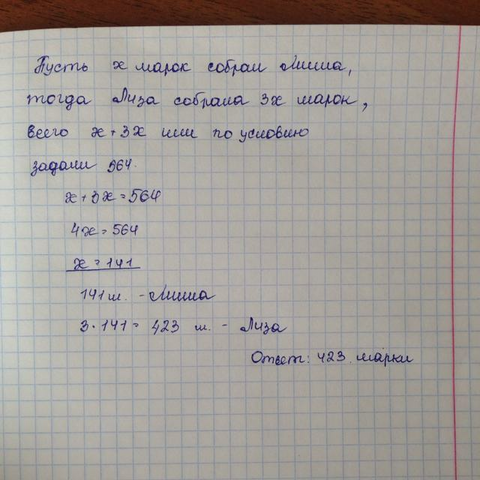 Пусть x марок собрал Миша,
тогда Лиза собрала 3x марок,
всего x+3x или по условию
задачи 564.
x+3x=564
4x=564
x=141
141 м. - Миша
3·141=423 м. - Лиза
Ответ: 423 марки